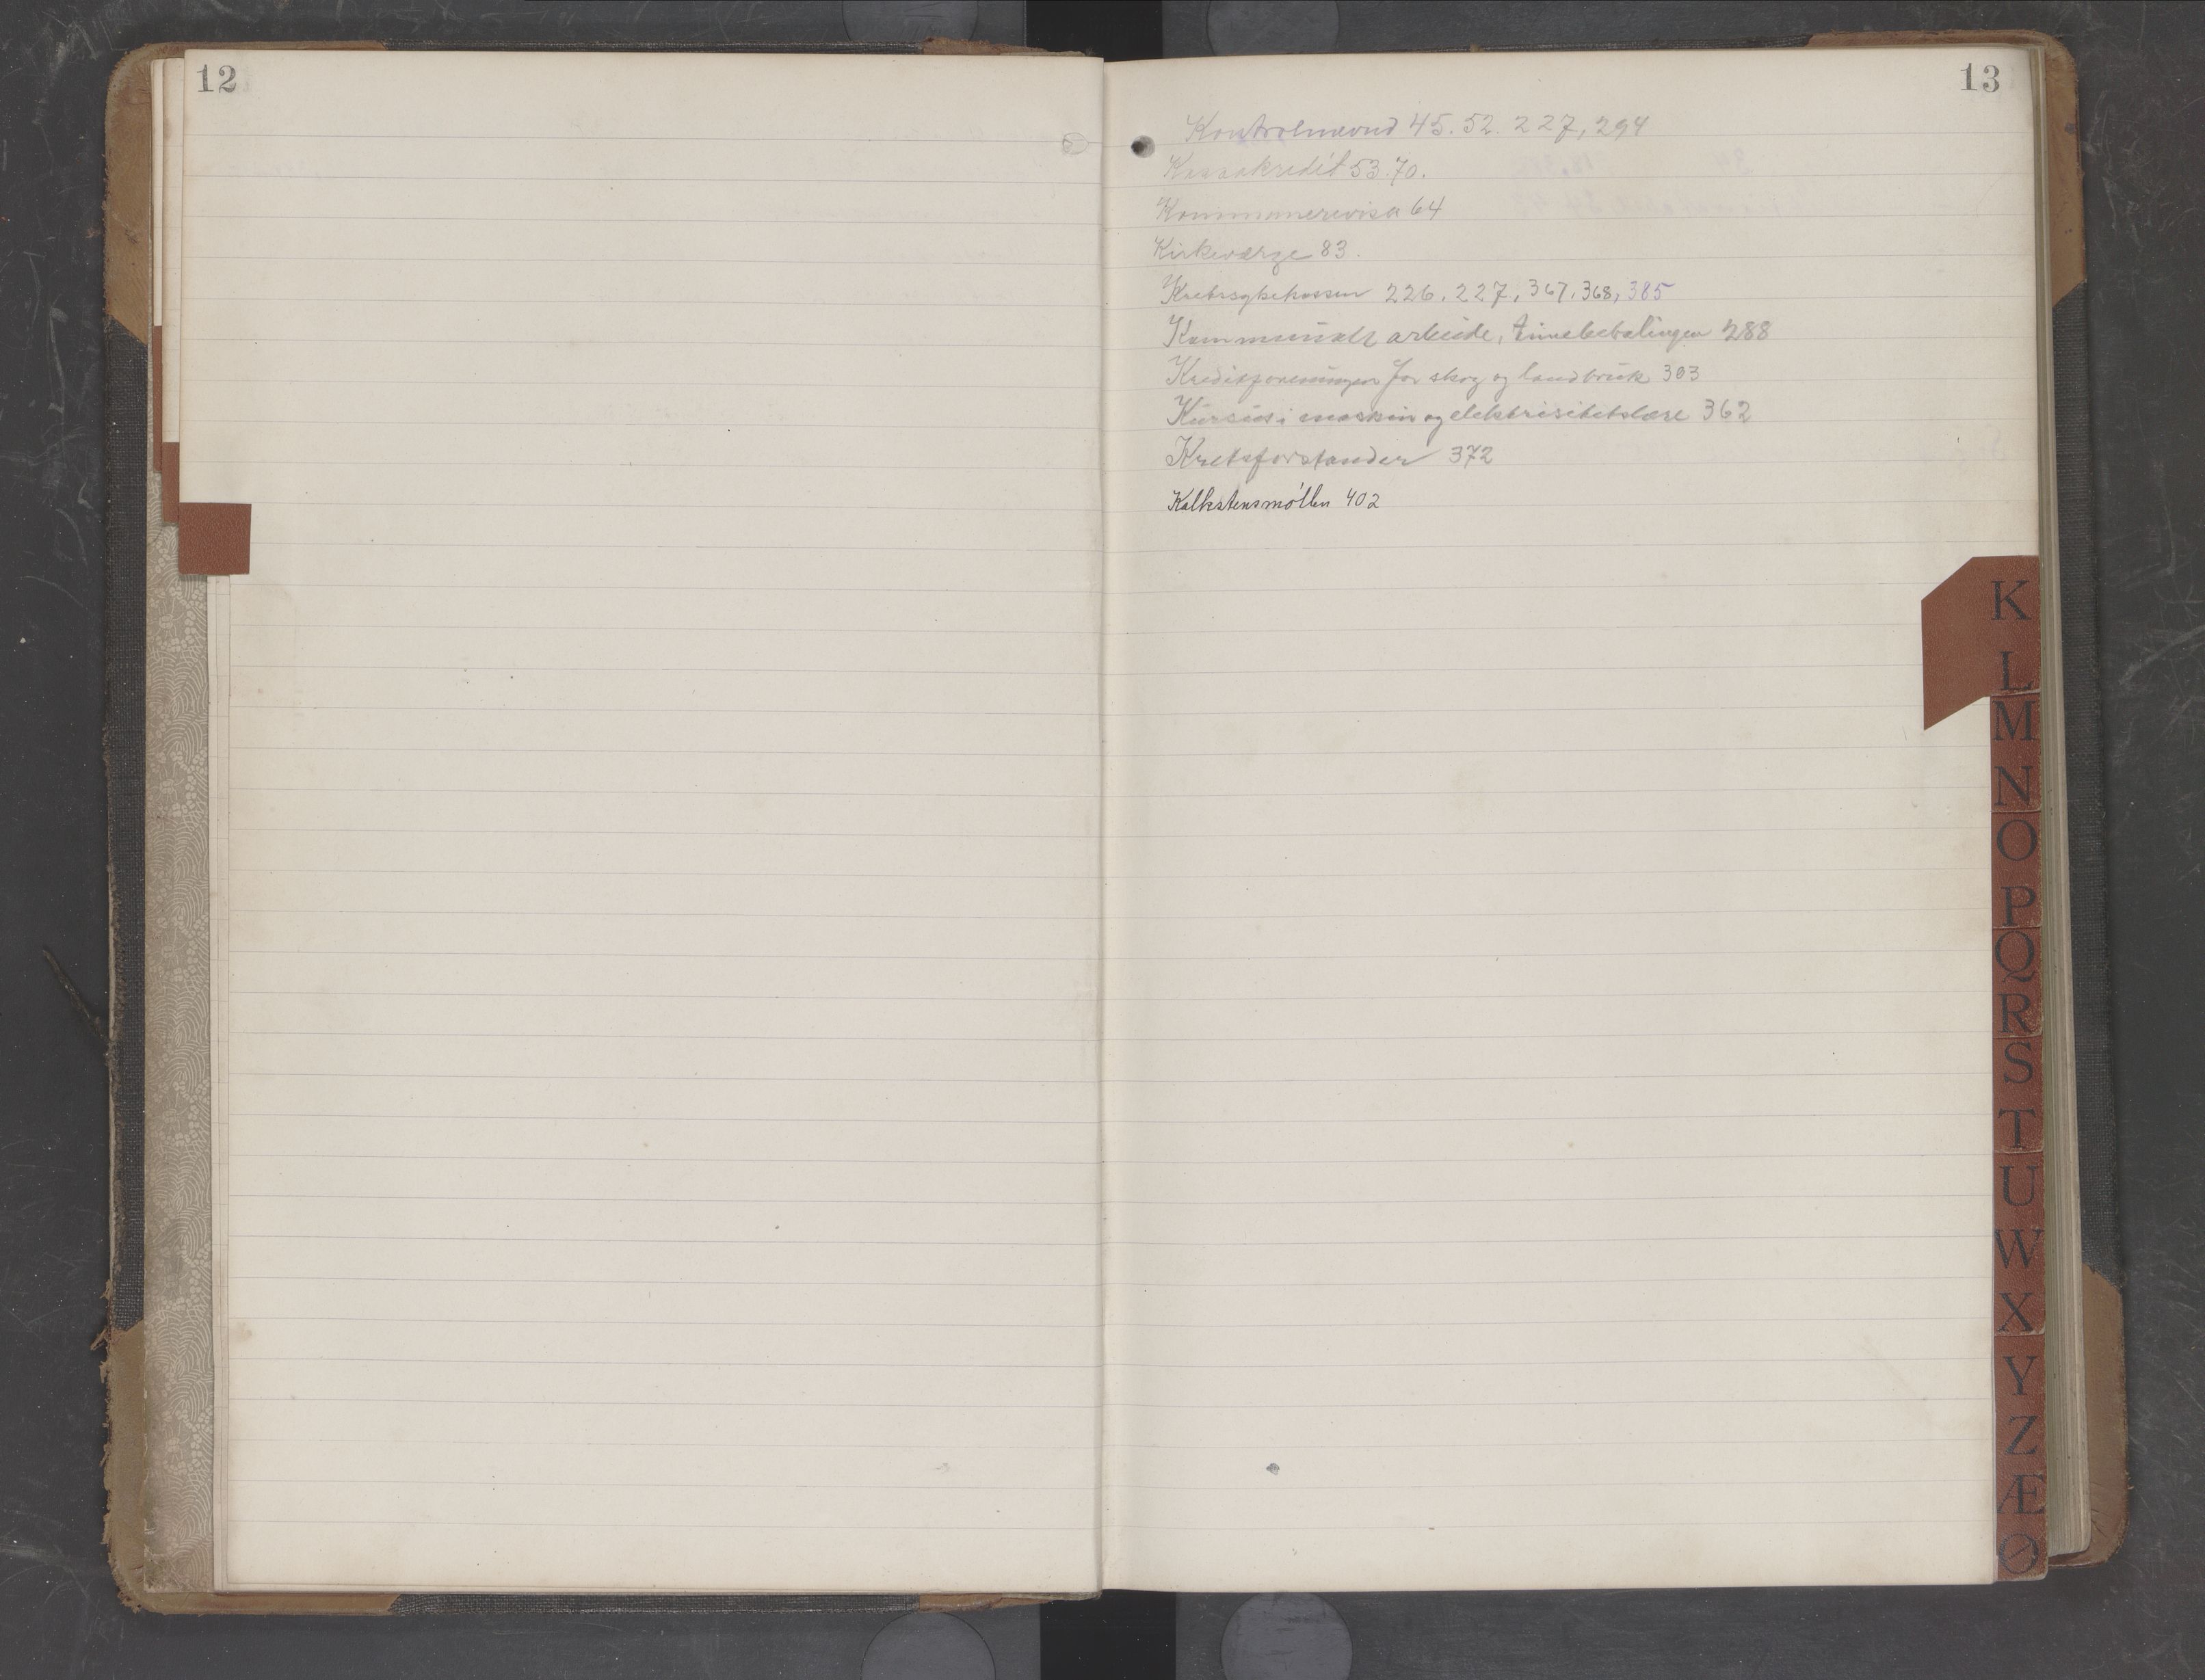 12
13
Kontrolnævnd 45. 52. 227, 294
Kassakredit 53. 70.
Kommunerevisor 64
Kirkeværge 83.
Kretssykekassen 226. 227, 367. 368, 385
Kommunalt arbeide, timebetalingen 288
Kreditforeningen for skog og landbruk 303
Kursus i maskin og elektrisitetslære 362
Kretsforstander 372
Kalkstensmøllen 402
K
L
M
N
O
P
Q
R
S
T
U
W
X
Y
Z
Æ
Ø